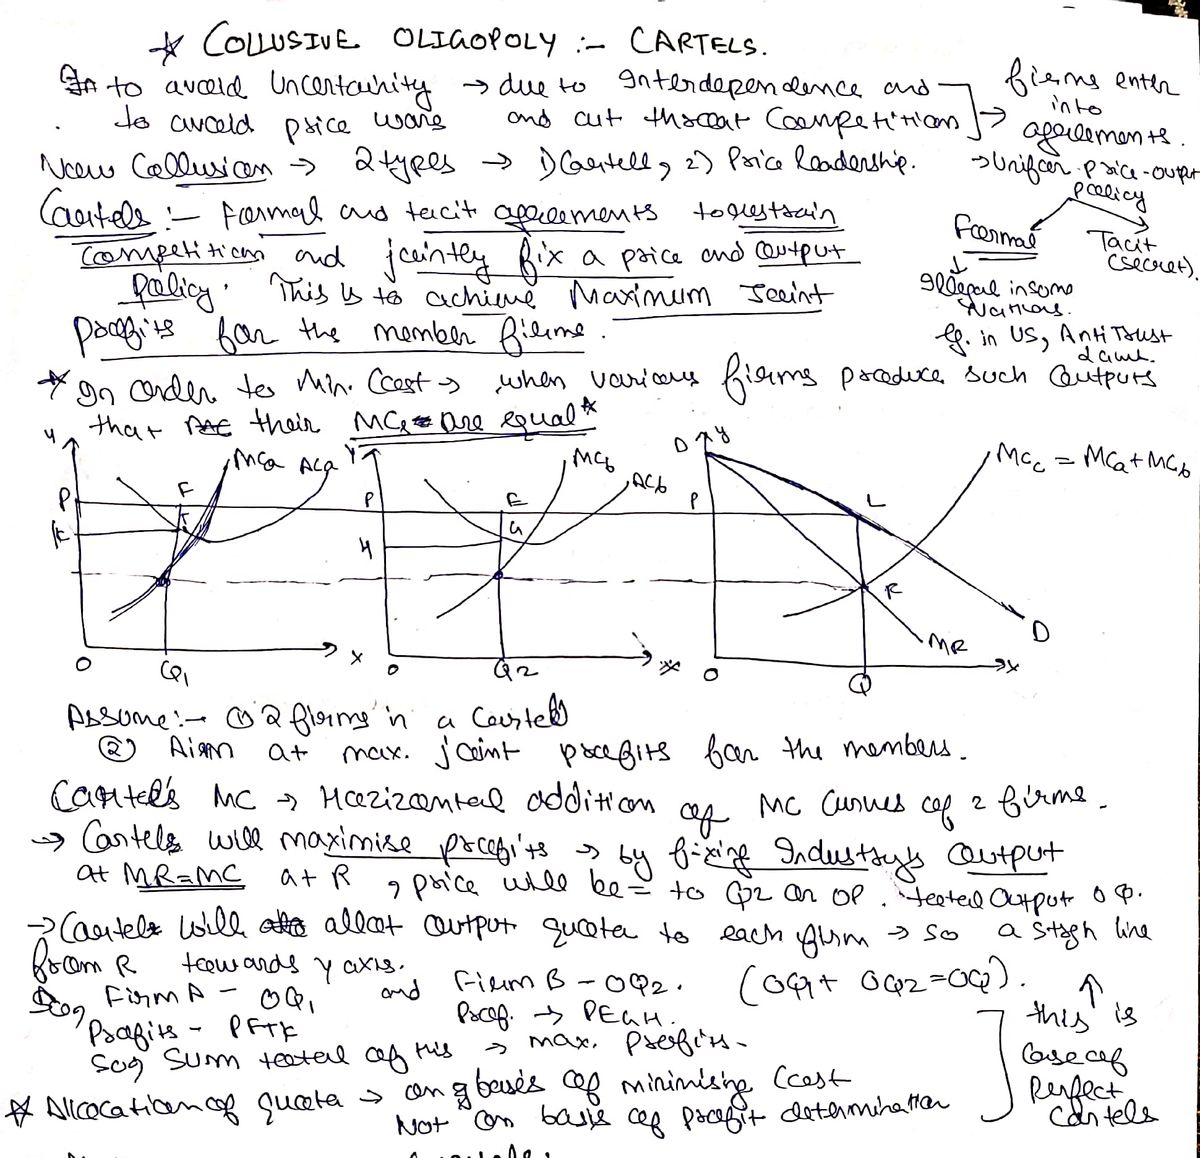 * COLLUSIVE OLIGOPOLY :- CARTELS.
to avoid Uncertainity → due to Interdependence and
to avoid price wars and cut throat Competition
→ firms enter
into
agreements.
→ Uniform price-output
policy
Formal
Tacit
(secret).
Illegal in some
Nations.
eg. in US, Anti Trust
Laws.
Now Collusion → 2 types → 1) Cartell, 2) Price Leadership.
Cartels :- Formal and tacit agreements to restrain
Competition and jointly fix a price and output
policy. This is to achieve Maximum Joint
Profits for the member firms.
* In order to Min. Cost → when various firms produce such Outputs
that their MCs are equal*
Y P K F T MCa ACa O Q1 X
Y P H E G MCb ACb O Q2 X
D Y P L R MCc = MCa + MCb MR D O Q X
Assume :- ① 2 firms in a Cartel
② Aim at max. joint profits for the members.
Cartel's MC → Horizontal addition of MC Curves of 2 firms.
→ Cartels will maximise profits → by fixing Industry's Output
at MR=MC at R, price will be = to QL or OP. total Output OQ.
→ Cartels will allot output quota to each firm → so a stgh line
from R towards y axis.
So, Firm A - OQ1 and Firm B - OQ2. (OQ1 + OQ2 = OQ).
Profits - PFTK Prof. → PEGH.
So, Sum total of this → max. Profits.
* Allocation of quota → on basis of minimising Cost
Not on basis of profit determination
↑
this is
Case of
Perfect
Cartels